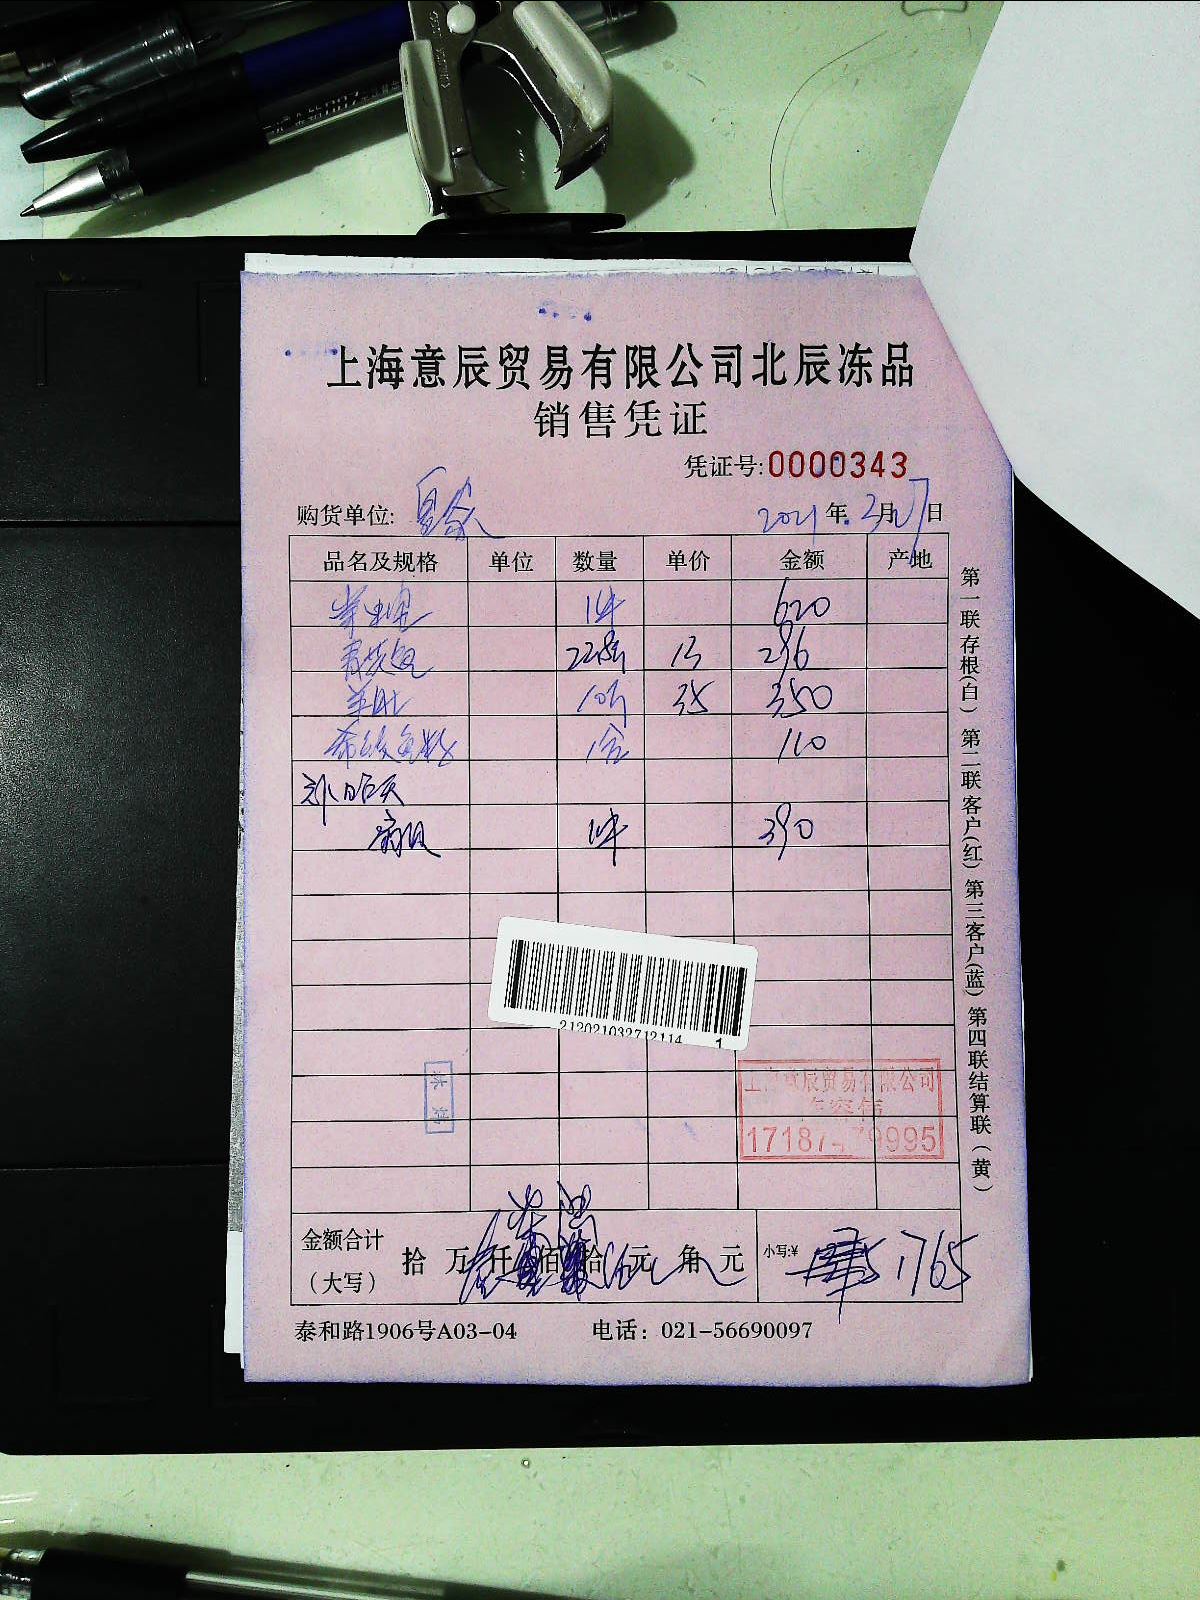 上海意辰贸易有限公司北辰冻品
销售凭证
凭证号:0000343
购货单位:
2021年3月27日
品名及规格 单位 数量 单价 金额 产地
1件 620
13 296
羊肚 10斤 35 350
1盒 110
补昨天
1件 390
212021032712114 1
上海意辰贸易有限公司
金额合计
(大写)
拾 万 仟 佰 拾 元 角 元
小写:¥ 1765
泰和路1906号A03-04 电话：021-56690097
第一联存根(白) 第二联客户(红) 第三客户(蓝) 第四联结算联(黄)